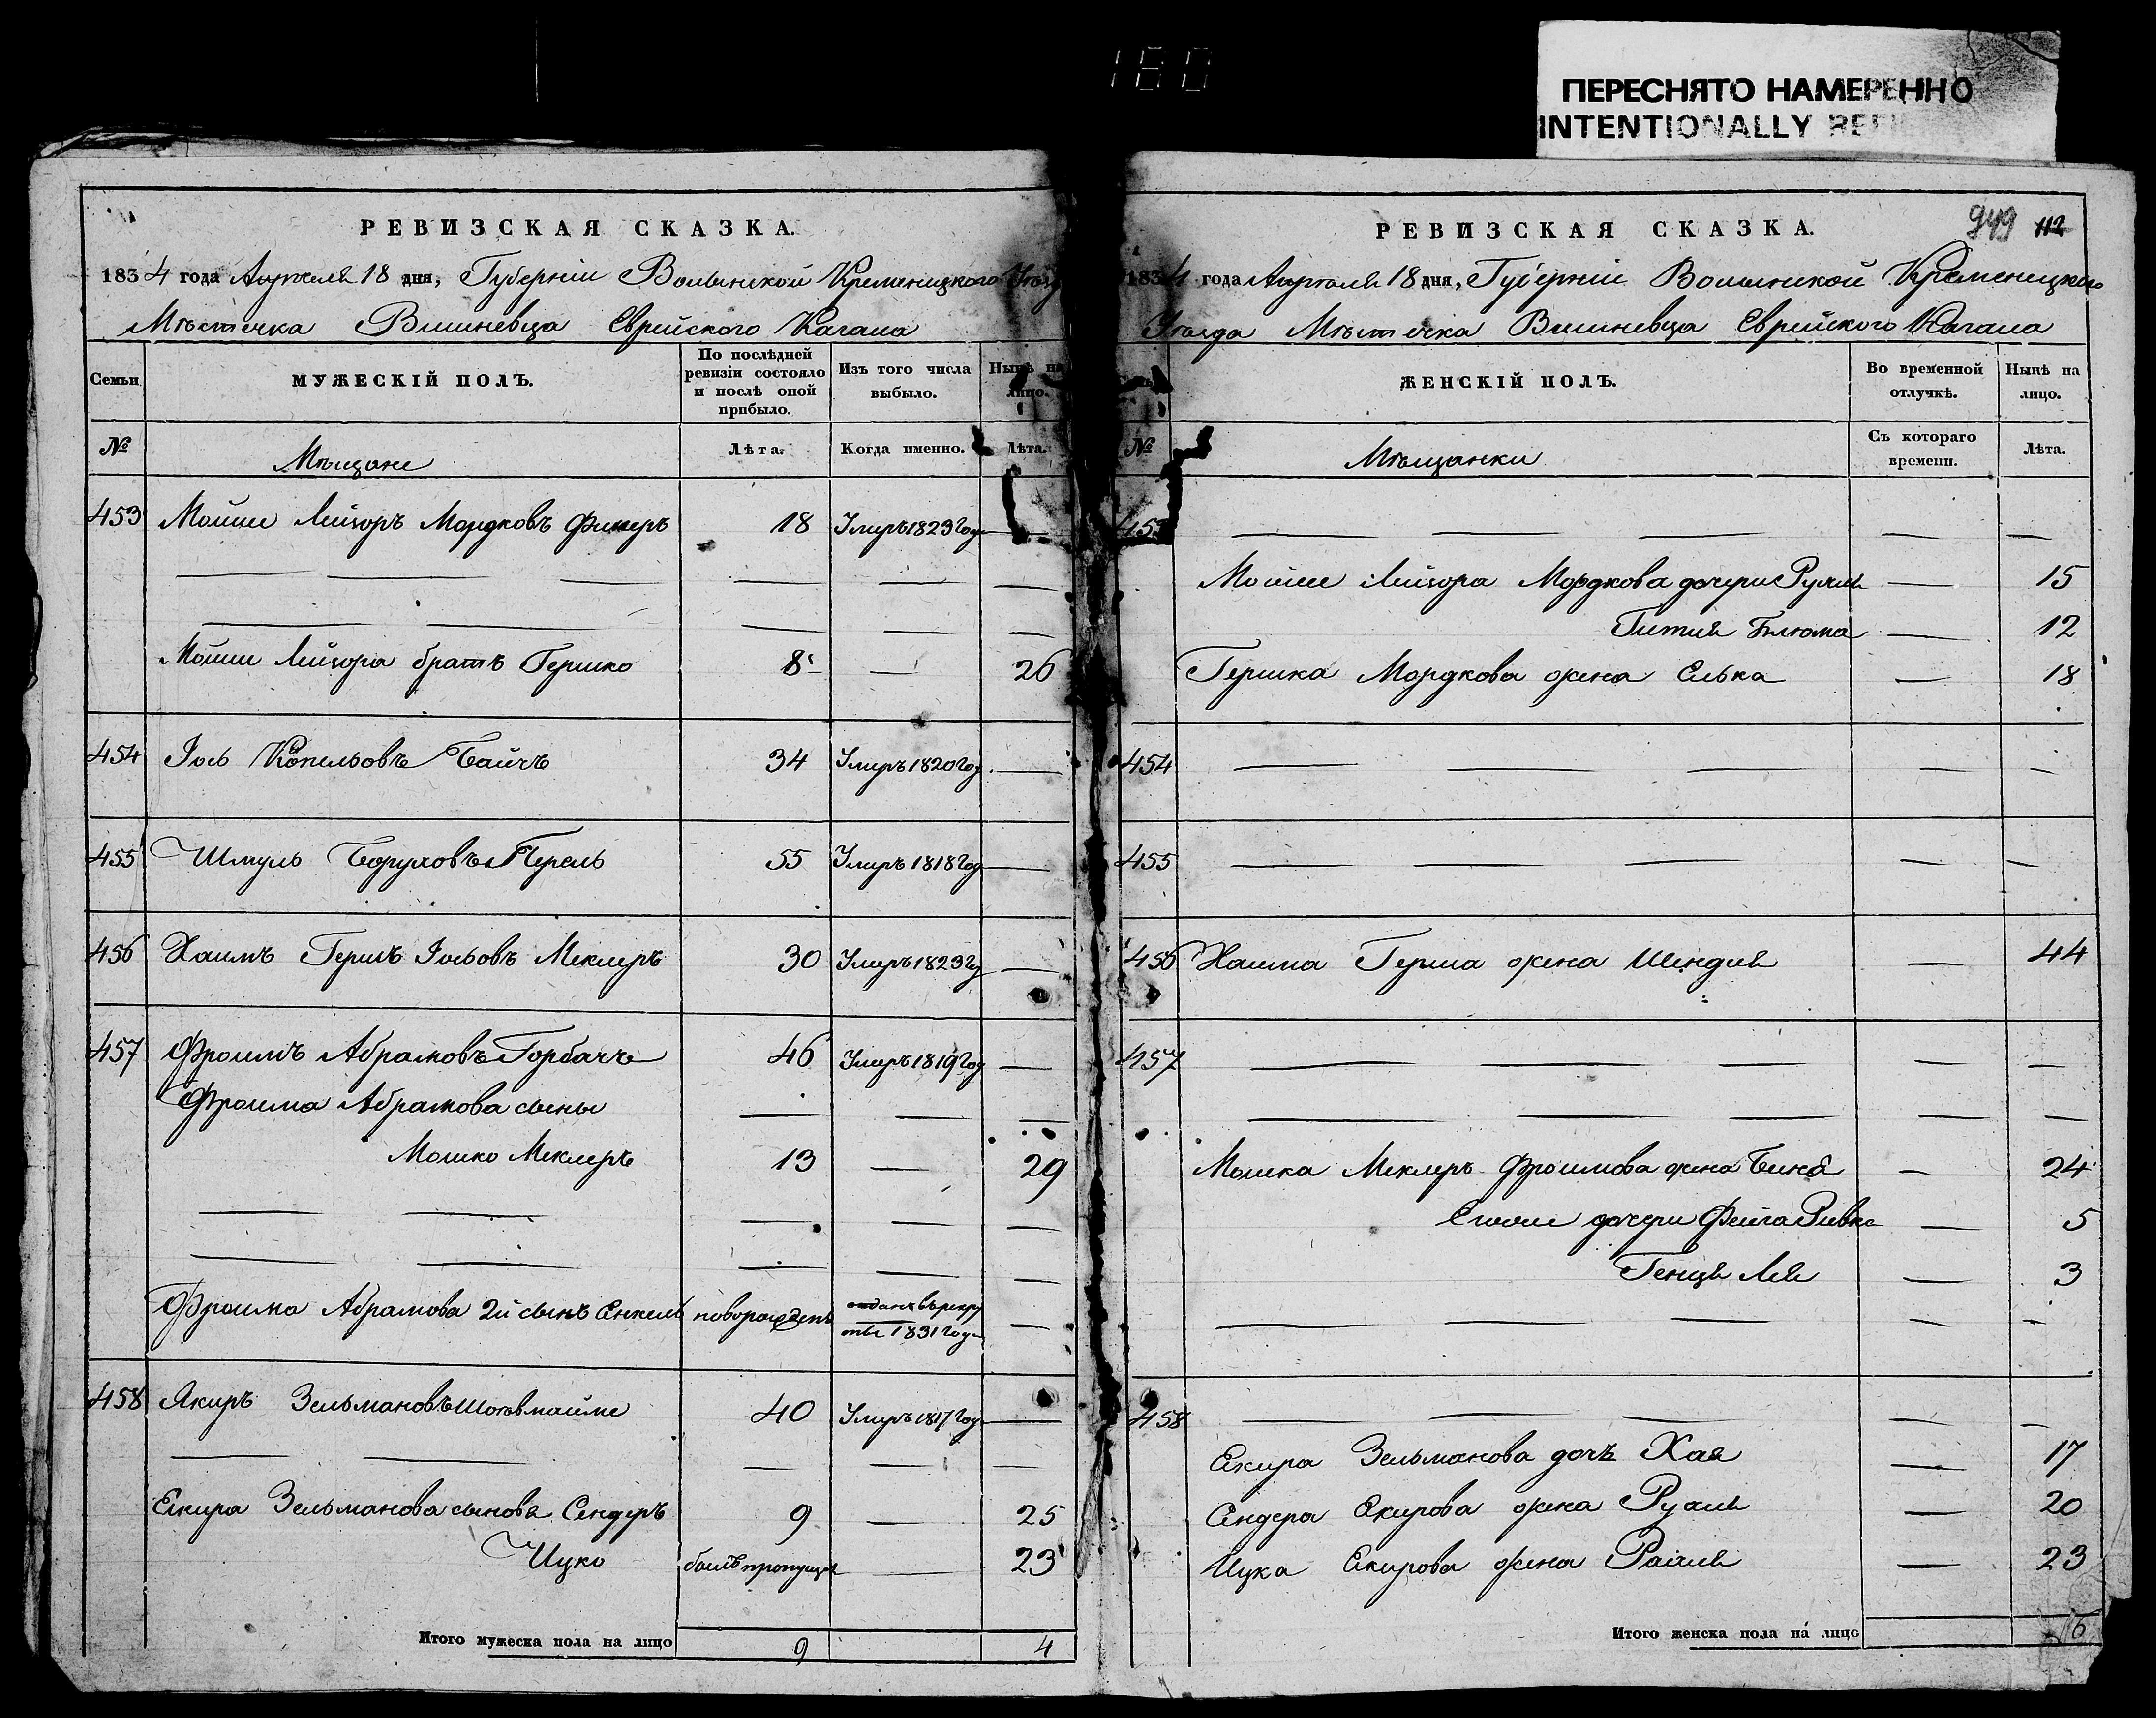 180
ПЕРЕСНЯТО НАМЕРЕННО
INTENTIONALLY
РЕВИЗСКАЯ СКАЗКА.
1834 года Апреля 18 дня, Губерніи Волынской Кременецкого Уезда
Мѣстечка Вишневца Еврейского Кагала
Семьи
МУЖЕСКІЙ ПОЛЪ.
По послѣдней ревизіи состояло и послѣ оной прибыло.
Изъ того числа выбыло.
Нынѣ на лицо.
№
Мѣщане
Лѣта.
Когда именно.
Лѣта.
453 Мошше Лейзоръ Мордковъ 18 Умеръ 1823 Год —
— — — — — —
— — — — —
Мошше Лейзора братъ Гершко 8 — 26
454 Іось Копельовъ 34 Умеръ 1820 Год. —
455 Шмуль Боруховъ Перель 55 Умеръ 1818 Год —
456 Хаимъ Гершъ Іосьовъ Меклеръ 30 Умеръ 1823 Год —
457 Фроимъ Абрамовъ Горбачъ 46 Умеръ 1819 Год —
Фроима Абрамова сыны — — —
Мошко Меклеръ 13 — 29
— — — — —
— — — — —
Фроима Абрамова 2й сынъ Енкель новорожденъ отданъ въ рекру
ты 1831 Год —
458 Якиръ Зельмановъ 40 Умеръ 1817 Год —
— — — — —
Екира Зельманова сыновя Сендеръ 9 — 25
Ицко былъ пропущен — 23
Итого мужеска пола на лицо 9 4
РЕВИЗСКАЯ СКАЗКА.
949 112
1834 года Апреля 18 дня, Губерніи Волынской Кременецкого
Уезда Мѣстечка Вишневца Еврейского Кагала
ЖЕНСКІЙ ПОЛЪ.
Во временной отлучкѣ.
Нынѣ на лицо.
№
Мѣщанки
Съ котораго времени.
Лѣта.
453 — — — — —
Мошше Лейзора Мордкова дочери Рухля — 15
Гитля Блюма — 12
Гершка Мордкова жена Елька — 18
454 — — — — —
455 — — — — —
456 Хаима Герша жена Шендля — 44
457 — — — — —
— — — — —
Мошка Меклеръ Фроимова жена Бина — 24
дочери Фейга Ривка — 5
Генця Лея — 3
— — — — —
458 — — — — —
Екира Зельманова дочь Хая — 17
Сендера Екирова жена Рухля — 20
Ицка Екирова жена — 23
Итого женска пола на лицо